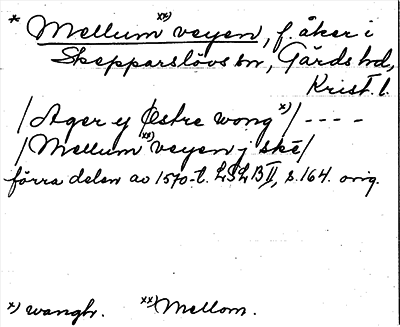 * Mellum xx) veyen, f. åker i
Skepparslövs sn, Gärds hd,
Krist. l.
/Ager y Østre wong x)/ - - - -
/Mellum xx) veyen j ske/
förra delen av 1570-t. LSLB II, s. 164. orig.
x) wangh. xx) Mellom.